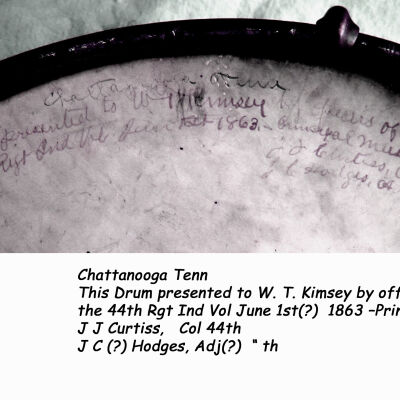 Chattanooga Tenn
presented to W T Kimsey by
Rgt Ind Vol June 1863 - Principal
J J Curtiss,
Hodges,
Chattanooga Tenn
This Drum presented to W. T. Kimsey by off
the 44th Rgt Ind Vol June 1st(?) 1863 –Prin
J J Curtiss, Col 44th
J C (?) Hodges, Adj(?) " th